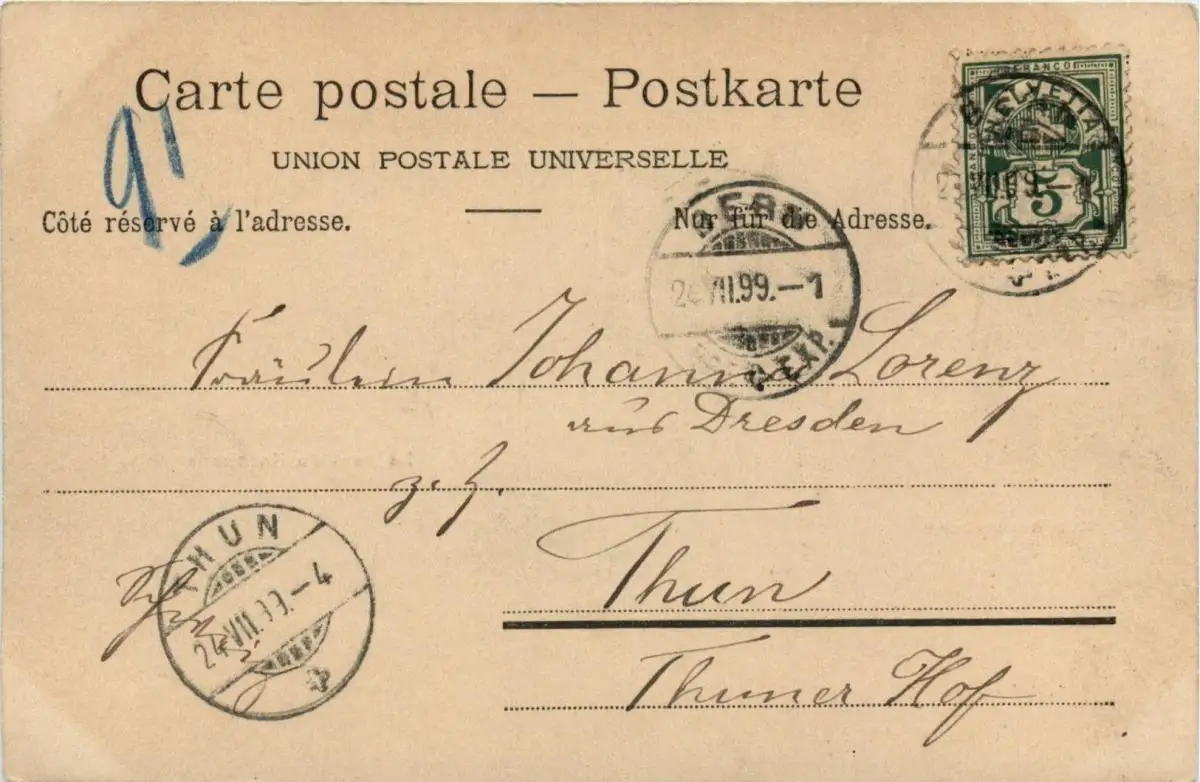 Carte postale — Postkarte
UNION POSTALE UNIVERSELLE
Côté réservé à l'adresse.
Nur für die Adresse.
FRANCO
HELVETIA
5
BERN
24.VII.99.—1
EXP.
Fräulein Johanna Lorenz
aus Dresden
z. Z.
Thun
Thuner Hof
THUN
24.VII.99.—4